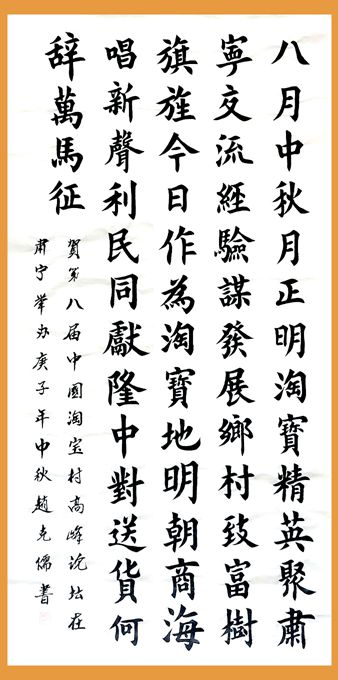 八月中秋月正明淘寶精英聚肅
寧交流經驗謀發展鄉村致富樹
旗旌今日作為淘寶地明朝商海
唱新聲利民同獻隆中對送貨何
辞萬馬征
賀第八届中國淘宝村高峰论坛在
肃宁举办庚子年中秋趙克儒書